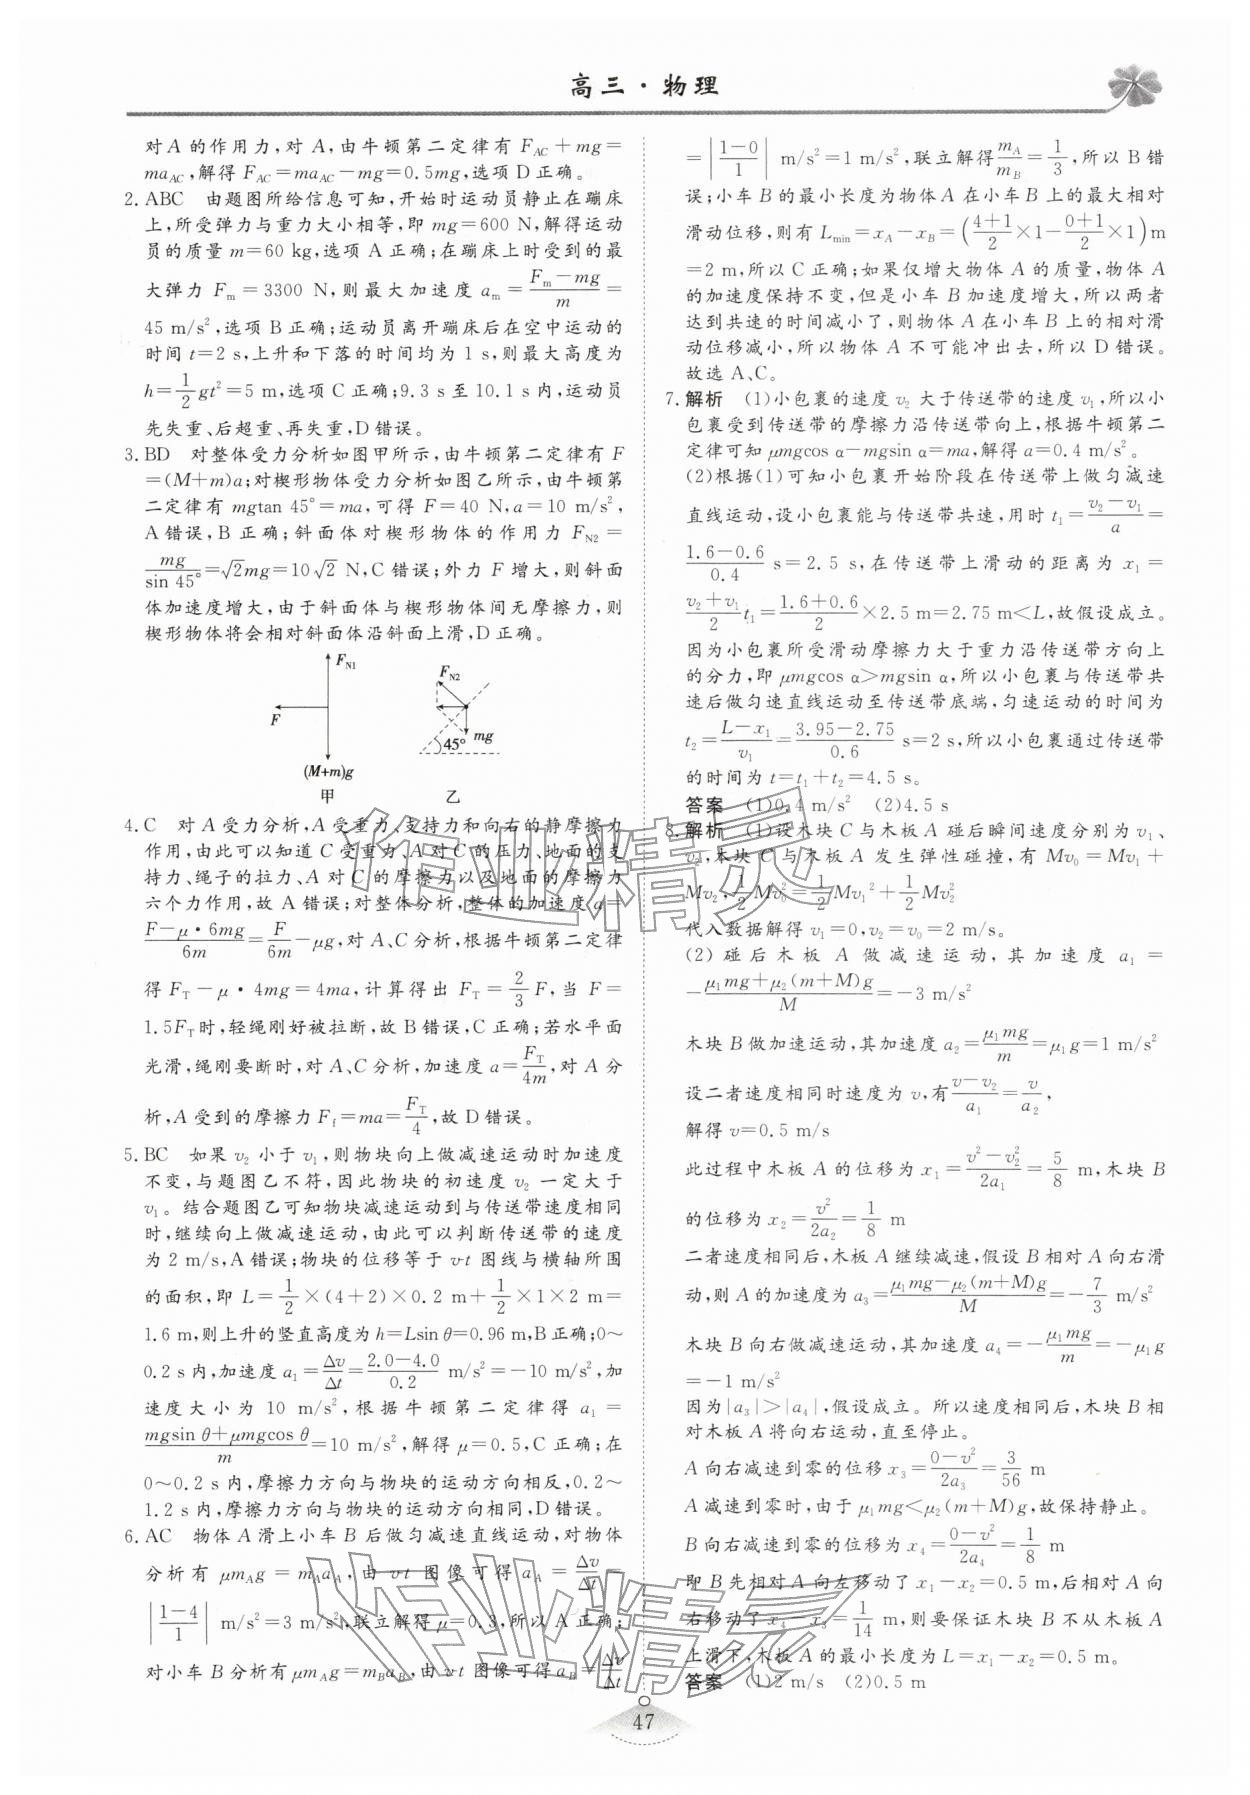 高三·物理
对A的作用力,对A,由牛顿第二定律有F_AC+mg=
ma_AC,解得F_AC=ma_AC-mg=0.5mg,选项D正确。
2. ABC 由题图所给信息可知,开始时运动员静止在蹦床
上,所受弹力与重力大小相等,即mg=600 N,解得运动
员的质量m=60 kg,选项A正确;在蹦床上时受到的最
大弹力F_m=3300 N,则最大加速度a_m=(F_m-mg)/m=
45 m/s²,选项B正确;运动员离开蹦床后在空中运动的
时间t=2 s,上升和下落的时间均为1 s,则最大高度为
h=1/2gt²=5 m,选项C正确;9.3 s至10.1 s内,运动员
先失重、后超重、再失重,D错误。
3. BD 对整体受力分析如图甲所示,由牛顿第二定律有F
=(M+m)a;对楔形物体受力分析如图乙所示,由牛顿第
二定律有mgtan 45°=ma,可得F=40 N,a=10 m/s²,
A错误,B正确;斜面体对楔形物体的作用力F_N2=
mg/sin 45°=√2mg=10√2 N,C错误;外力F增大,则斜面
体加速度增大,由于斜面体与楔形物体间无摩擦力,则
楔形物体将会相对斜面体沿斜面上滑,D正确。
F_N1
F
(M+m)g
甲
F_N2
45°
mg
乙
4. C 对A受力分析,A受重力、支持力和向右的静摩擦力
作用,由此可以知道C受重力、A对C的压力、地面的支
持力、绳子的拉力、A对C的摩擦力以及地面的摩擦力
六个力作用,故A错误;对整体分析,整体的加速度a=
(F-μ·6mg)/6m=F/6m-μg,对A、C分析,根据牛顿第二定律
得F_T-μ·4mg=4ma,计算得出F_T=2/3F,当F=
1.5F_T时,轻绳刚好被拉断,故B错误,C正确;若水平面
光滑,绳刚要断时,对A、C分析,加速度a=F_T/4m,对A分
析,A受到的摩擦力F_f=ma=F_T/4,故D错误。
5. BC 如果v₂小于v₁,则物块向上做减速运动时加速度
不变,与题图乙不符,因此物块的初速度v₂一定大于
v₁。结合题图乙可知物块减速运动到与传送带速度相同
时,继续向上做减速运动,由此可以判断传送带的速度
为2 m/s,A错误;物块的位移等于v-t图线与横轴所围
的面积,即L=1/2×(4+2)×0.2 m+1/2×1×2 m=
1.6 m,则上升的竖直高度为h=Lsin θ=0.96 m,B正确;0~
0.2 s内,加速度a₁=Δv/Δt=(2.0-4.0)/0.2 m/s²=-10 m/s²,加
速度大小为10 m/s²,根据牛顿第二定律得a₁=
(mgsin θ+μmgcos θ)/m=10 m/s²,解得μ=0.5,C正确;在
0~0.2 s内,摩擦力方向与物块的运动方向相反,0.2~
1.2 s内,摩擦力方向与物块的运动方向相同,D错误。
6. AC 物体A滑上小车B后做匀减速直线运动,对物体
分析有μm_Ag=m_Aa_A,由v-t图像可得a_A=Δv/Δt=
|(1-4)/1| m/s²=3 m/s²,联立解得μ=0.3,所以A正确;
对小车B分析有μm_Ag=m_Ba_B,由v-t图像可得a_B=Δv/Δt
=|(1-0)/1| m/s²=1 m/s²,联立解得m_A/m_B=1/3,所以B错
误;小车B的最小长度为物体A在小车B上的最大相对
滑动位移,则有L_min=x_A-x_B=((4+1)/2×1-(0+1)/2×1)m
=2 m,所以C正确;如果仅增大物体A的质量,物体A
的加速度保持不变,但是小车B加速度增大,所以两者
达到共速的时间减小了,则物体A在小车B上的相对滑
动位移减小,所以物体A不可能冲出去,所以D错误。
故选A、C。
7. 解析 (1)小包裹的速度v₂大于传送带的速度v₁,所以小
包裹受到传送带的摩擦力沿传送带向上,根据牛顿第二
定律可知μmgcos α-mgsin α=ma,解得a=0.4 m/s²。
(2)根据(1)可知小包裹开始阶段在传送带上做匀减速
直线运动,设小包裹能与传送带共速,用时t₁=(v₂-v₁)/a=
(1.6-0.6)/0.4 s=2.5 s,在传送带上滑动的距离为x₁=
(v₂+v₁)/2 t₁=(1.6+0.6)/2×2.5 m=2.75 m<L,故假设成立。
因为小包裹所受滑动摩擦力大于重力沿传送带方向上
的分力,即μmgcos α>mgsin α,所以小包裹与传送带共
速后做匀速直线运动至传送带底端,匀速运动的时间为
t₂=(L-x₁)/v₁=(3.95-2.75)/0.6 s=2 s,所以小包裹通过传送带
的时间为t=t₁+t₂=4.5 s。
答案 (1)0.4 m/s² (2)4.5 s
8. 解析 (1)设木块C与木板A碰后瞬间速度分别为v₁、
v₂,木块C与木板A发生弹性碰撞,有Mv₀=Mv₁+
Mv₂,1/2Mv₀²=1/2Mv₁²+1/2Mv₂²
代入数据解得v₁=0,v₂=v₀=2 m/s。
(2)碰后木板A做减速运动,其加速度a₁=
-(μ₁mg+μ₂(m+M)g)/M=-3 m/s²
木块B做加速运动,其加速度a₂=μ₁mg/m=μ₁g=1 m/s²
设二者速度相同时速度为v,有(v-v₂)/a₁=v/a₂,
解得v=0.5 m/s
此过程中木板A的位移为x₁=(v²-v₂²)/2a₁=5/8 m,木块B
的位移为x₂=v²/2a₂=1/8 m
二者速度相同后,木板A继续减速,假设B相对A向右滑
动,则A的加速度为a₃=(μ₁mg-μ₂(m+M)g)/M=-7/3 m/s²
木块B向右做减速运动,其加速度a₄=-μ₁mg/m=-μ₁g
=-1 m/s²
因为|a₃|>|a₄|,假设成立。所以速度相同后,木块B相
对木板A将向右运动,直至停止。
A向右减速到零的位移x₃=(0-v²)/2a₃=3/56 m
A减速到零时,由于μ₁mg<μ₂(m+M)g,故保持静止。
B向右减速到零的位移x₄=(0-v²)/2a₄=1/8 m
即B先相对A向左移动了x₁-x₂=0.5 m,后相对A向
右移动了x₄-x₃=1/14 m,则要保证木块B不从木板A
上滑下,木板A的最小长度为L=x₁-x₂=0.5 m。
答案 (1)2 m/s (2)0.5 m
47
作业精灵
作业精灵